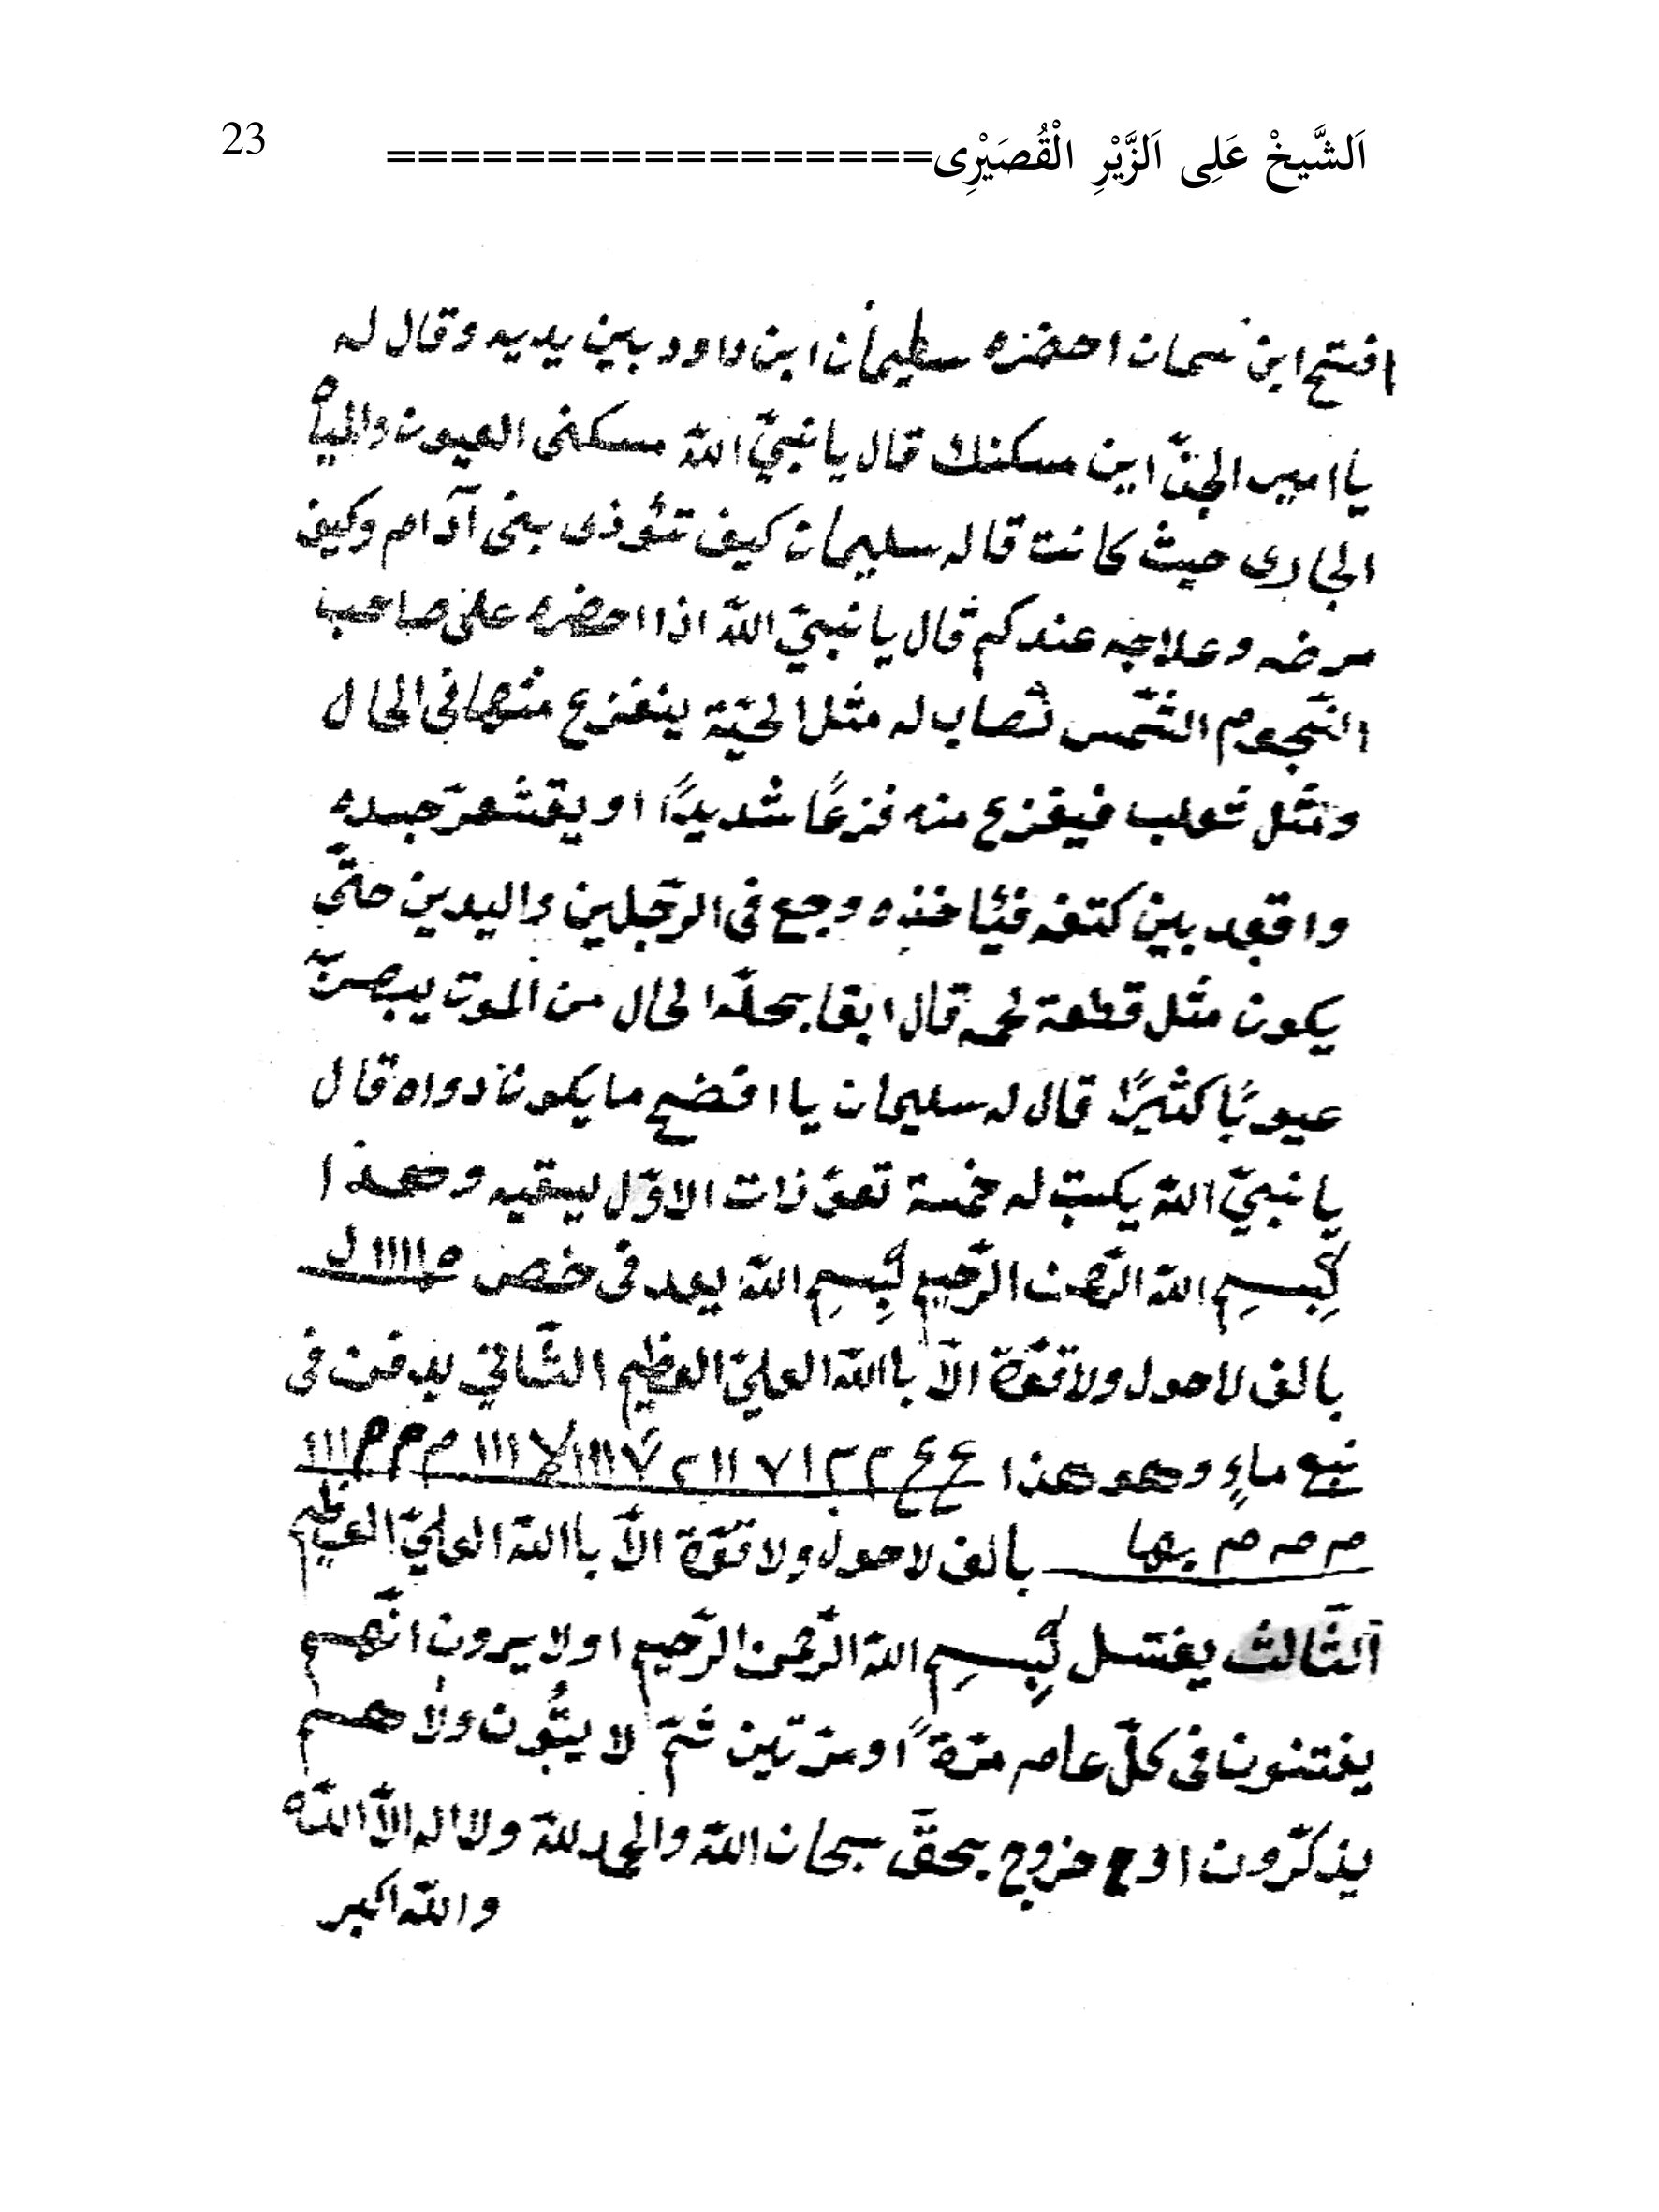 اَلشَّيخْ عَلِى اَلزَّيْرِ الْقُصَيْرِى================= 23
افتح ابن سمان احضره سليمان ابن داود بين يديه وقال له
يا امير الجنّ اين مسكنك قال يا نبيّ اللّه مسكنى العيون والمياه
الجارى حيث كانت قاله سليمان كيف تئوذى بنى آدام وكيف
مرضه وعلاجه عندكم قال يا نبيّ اللّه اذا احضره على صاحب
النّجوم الشّمس تصاب له مثل الحيّة ينفزع منها فى الحال
ومثل ثعلب فيفزع منه فزعًا شديدًا او يقشعرّ جسده
واقعد بين كتفه فيئاخذه وجع فى الرّجلين واليدين حتّى
يكون مثل قطعة لحم قال ابقا بحلّه الحال من الموت يبصرّ
عيوبًا كثيرًا قال له سليمان يا افضح ما يكون دواه قال
يا نبيّ اللّه يكتب له خمسة تعوّذات الاوّل يسقيه وهذا
بِسمِ اللّه الرّحمن الرّحيم بِسمِ اللّه يعد فى خص ه١١١١١ ل
بالف لاحول ولاقوّة الاّ باللّه العليّ العظيم الثّاني يدفن فى
نبع ماءٍ وهو هذا ع ع ٢٢ ١ ٧ ١١ ٢ ٧ ١١١ لا ١١١ م م م ١١١
م مه م بها بالف لاحول ولا قوّة الاّ باللّه العليّ العظيم
الثّالث يغتسل بِسمِ اللّه الرّحمن الرّحيم اولا يرون انّهم
يفتنون فى كلّ عام مرّةً او مرّتين ثمّ لا يتوبون ولا هم
يذكّرون اوع خروج بحقّ سبحان اللّه والحمد للّه ولا اله الاّ اللّه
واللّه اكبر